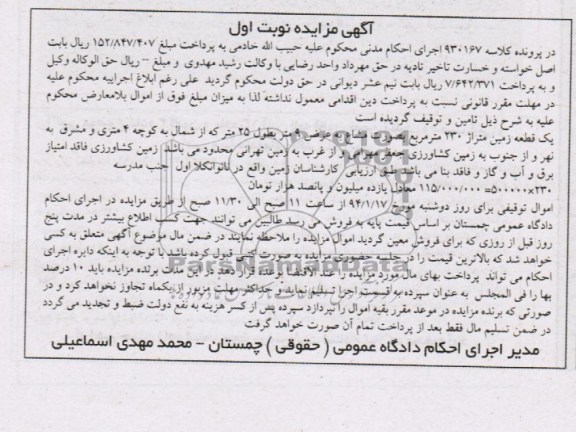 آگهی مزایده نوبت اول
در پرونده کلاسه ۹۳۰۱۶۷ اجرای احکام مدنی محکوم علیه حبیب الله خادمی به پرداخت مبلغ ۱۵۲/۸۴۷/۴۰۷ ریال بابت
اصل خواسته و خسارت تاخیر تادیه در حق مهرداد واحد رضایی با وکالت رشید مهدوی و مبلغ – ریال حق الوکاله وکیل
و به پرداخت ۷/۶۴۲/۳۷۱ ریال بابت نیم عشر دیوانی در حق دولت محکوم گردید علی رغم ابلاغ اجراییه محکوم علیه
در مهلت مقرر قانونی نسبت به پرداخت دین اقدامی معمول نداشته لذا به میزان مبلغ فوق از اموال بلامعارض محکوم
علیه به شرح ذیل تامین و توقیف گردیده است
یک قطعه زمین متراژ ۲۳۰ مترمربع بصورت مشاع به عرض ۹ متر بطول ۲۵ متر که از شمال به کوچه ۴ متری و مشرق به
نهر و از جنوب به زمین کشاورزی جمعه مهرپور و از غرب به زمین تهرانی محدود می باشد زمین کشاورزی فاقد امتیاز
برق و آب و گاز و فاقد بنا می باشد طبق ارزیابی کارشناسان زمین واقع در ناتوانکلا اول جنب مدرسه
۲۳۰×۵۰۰۰۰۰= ۱۱۵/۰۰۰/۰۰۰ معادل یازده میلیون و پانصد هزار تومان
اموال توقیفی برای روز دوشنبه مورخ ۹۴/۱/۱۷ از ساعت ۱۱ صبح الی ۱۱/۳۰ صبح از طریق مزایده در اجرای احکام
دادگاه عمومی چمستان بر اساس قیمت پایه به فروش می رسد طالبین می توانند جهت کسب اطلاع بیشتر در مدت پنج
روز قبل از روزی که برای فروش معین گردید اموال مزایده را ملاحظه نمایند در ضمن مال موضوع آگهی متعلق به کسی
خواهد شد که بالاترین قیمت را در جلسه حضوری مزایده به صورت کتبی قبول کرده باشد با توجه به اینکه دایره اجرای
احکام می تواند پرداخت بهای مال مورد مزایده را به وعده قرار دهد در این مدت برنده مزایده باید ۱۰ درصد
بها را فی المجلس به عنوان سپرده به قسمت اجرا تسلیم نماید و حداکثر مهلت مزبور از یکماه تجاوز نخواهد کرد و در
صورتی که برنده مزایده در موعد مقرر بقیه اموال را نپردازد سپرده پس از کسر هزینه به نفع دولت ضبط و تجدید می گردد
در ضمن تسلیم مال فقط بعد از پرداخت تمام آن صورت خواهد گرفت
مدیر اجرای احکام دادگاه عمومی ( حقوقی ) چمستان – محمد مهدی اسماعیلی